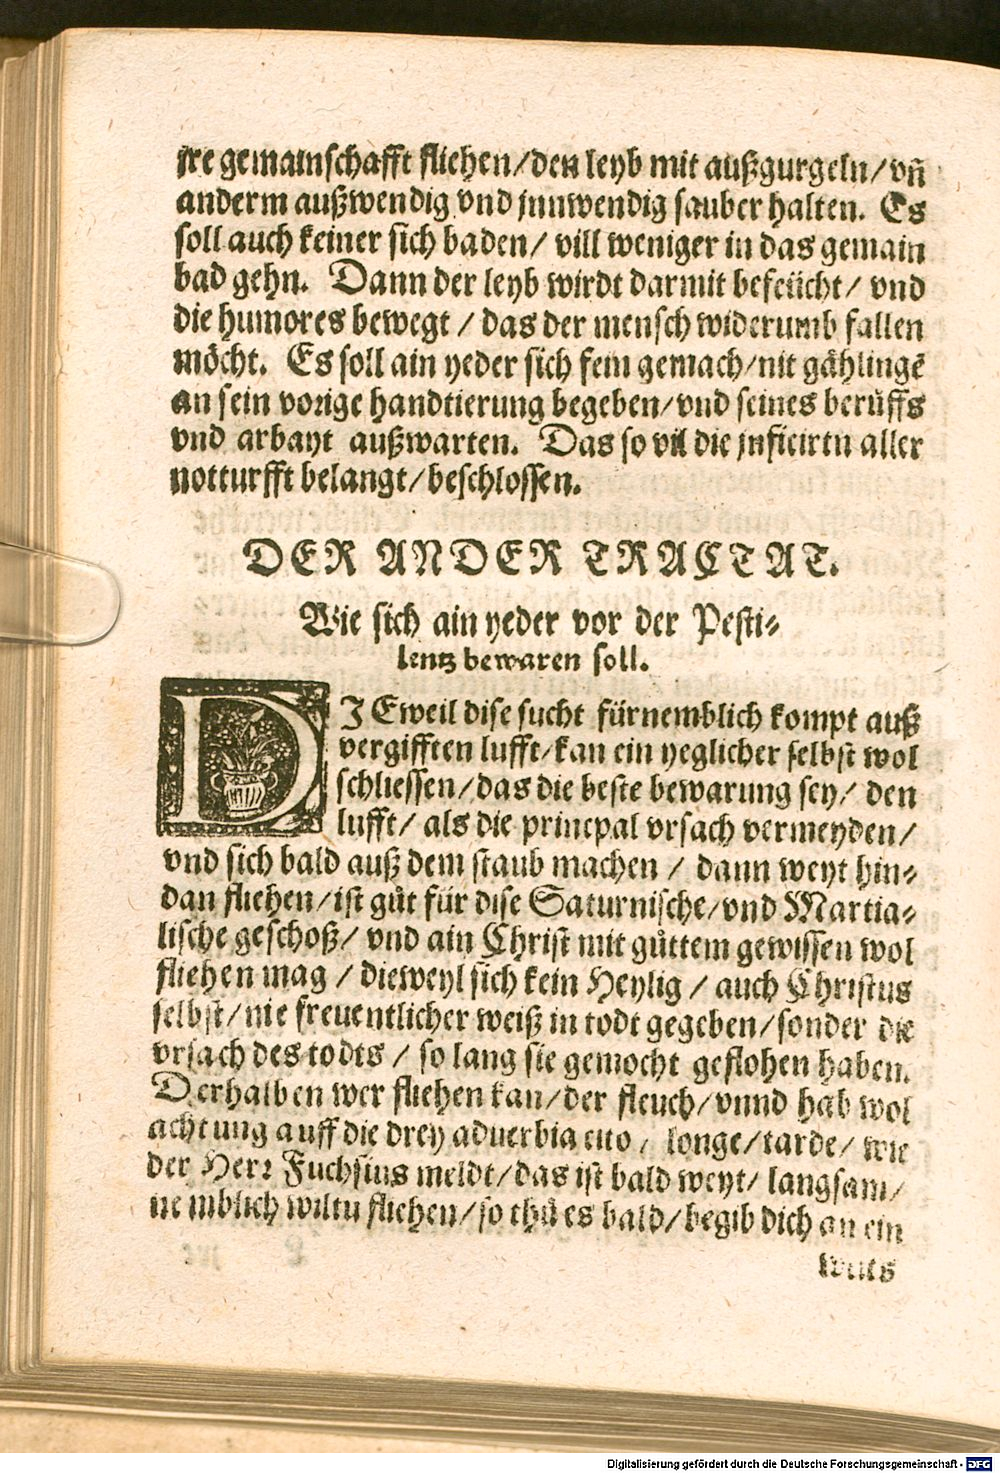 jre gemainschafft fliehen/den leyb mit außgurgeln/vñ
anderm außwendig vnd jnnwendig sauber halten. Es
soll auch keiner sich baden/ vill weniger in das gemain
bad gehn. Dann der leyb wirdt darmit befeücht/ vnd
die humores bewegt / das der mensch widerumb fallen
möcht. Es soll ain yeder sich fein gemach/nit gählingē
an sein vorige handtierung begeben/vnd seines berůffs
vnd arbayt außwarten. Das so vil die jnficirtn aller
notturfft belangt/beschlossen.
DER ANDER TRACTAT.
Wie sich ain yeder vor der Pesti-
lentz bewaren soll.
DIEweil dise sucht fürnemblich kompt auß
vergifften lufft/kan ein yeglicher selbst wol
schliessen/das die beste bewarung sey/ den
lufft/ als die principal vrsach vermeyden/
vnd sich bald auß dem staub machen / dann weyt hin-
dan fliehen/ist gůt für dise Saturnische/vnd Martia-
lische geschoß/ vnd ain Christ mit gůttem gewissen wol
fliehen mag / dieweyl sich kein Heylig / auch Christus
selbst/nie freuentlicher weiß in todt gegeben/sonder die
vrsach des todts / so lang sie gemocht geflohen haben.
Derhalben wer fliehen kan/der fleuch/vnnd hab wol
achtung auff die drey aduerbia cito, longe/tarde/ wie
der Herr Fuchsius meldt/das ist bald weyt/ langsam/
nemblich wiltu fliehen/so thů es bald/begib dich an ein
weits
Digitalisierung gefördert durch die Deutsche Forschungsgemeinschaft - DFG